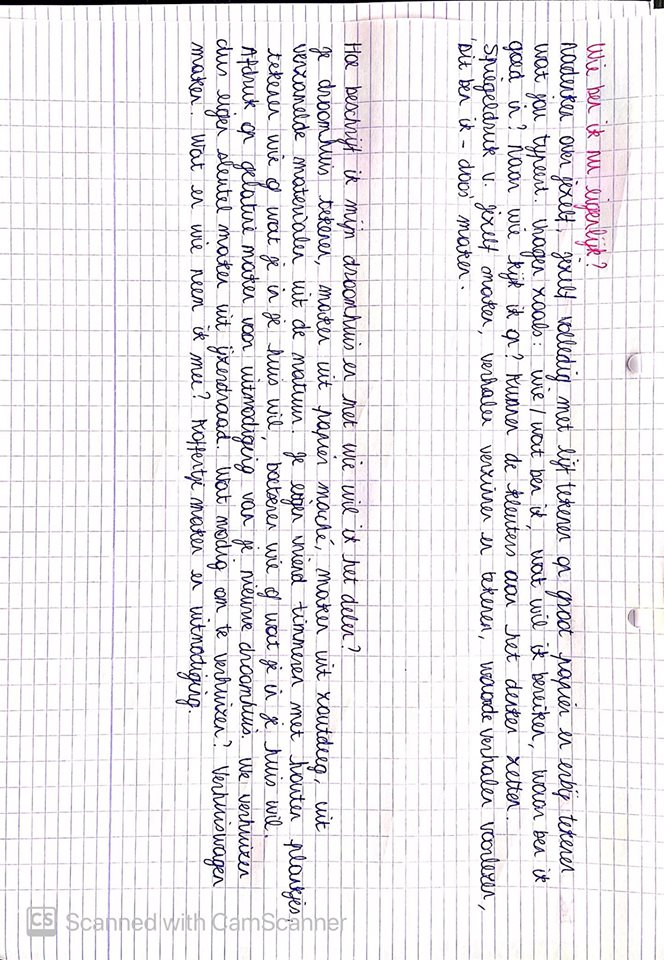 Wie ben ik nu eigenlijk?
Nadenken over jezelf, jezelf volledig met lijf tekenen op groot papier en erbij tekenen
wat jou typeert. Vragen zoals: wie/wat ben ik, wat wil ik bereiken, waar ben ik
goed in? Naar wie kijk ik op? Kunnen de kleuters aan het denken zetten.
Spiegeldruk v. jezelf maken, verhalen verzinnen en tekenen, verhalen voorlezen,
'dit ben ik - doos' maken.
Hoe beschrijft ik mijn droomhuis en met wie wil ik het delen?
Je droomhuis tekenen, maken uit papier maché, maken uit zoutdeeg, uit
verzamelde materialen uit de natuur. Je eigen vriend timmeren met houten plankjes,
tekenen wie of wat je in je huis wil, boetseren wie of wat je in je huis wil.
Afdruk op gelatine maken voor uitnodiging van je nieuwe droomhuis. We verhuizen
dus eigen sleutel maken uit ijzerdraad. Wat nodig om te verhuizen? Verhuiswagen
maken. Wat en wie neem ik mee? Koffertje maken en uitnodiging.
CS Scanned with CamScanner